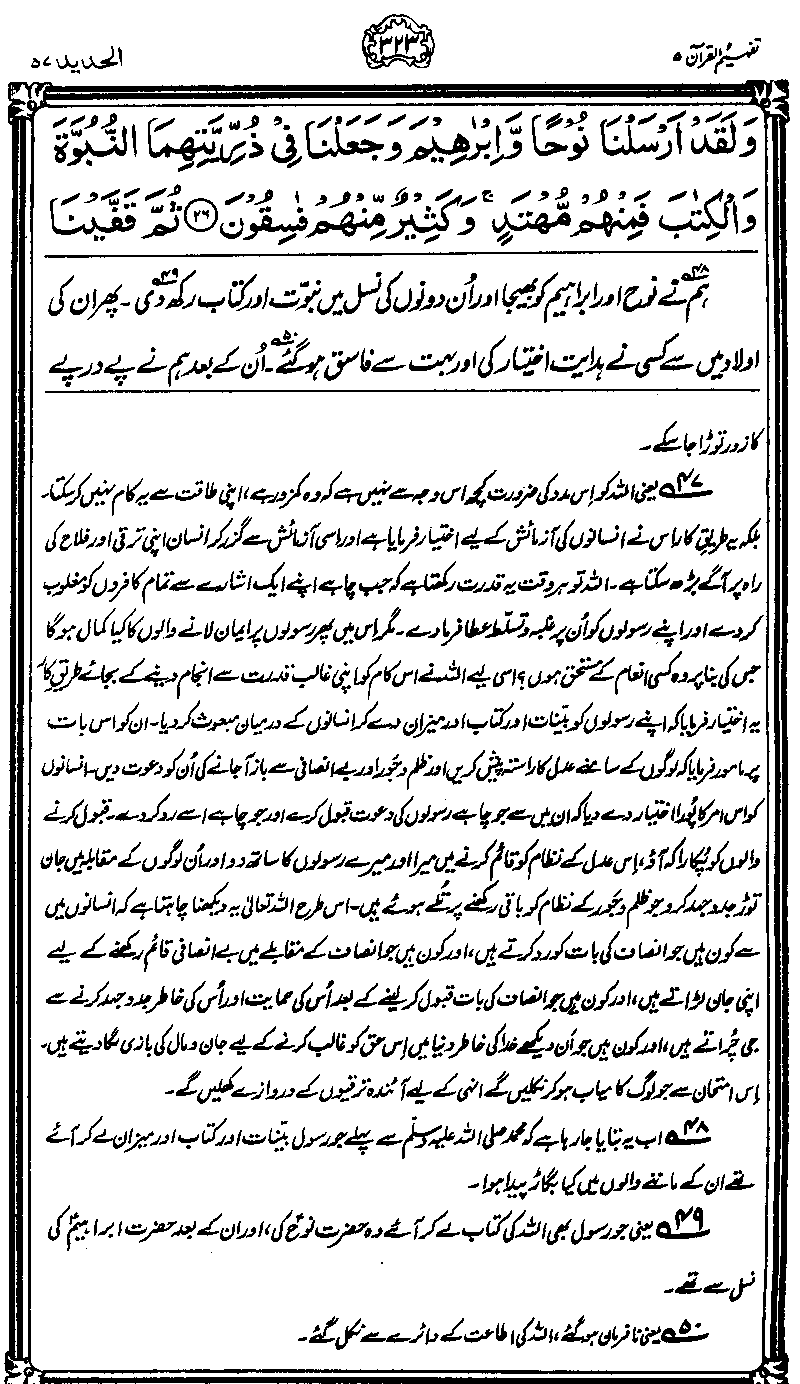 تفہیم القرآن ۵
۳۲۳
الحدید ۵۷
وَلَقَدْ اَرْسَلْنَا نُوْحًا وَّاِبْرٰهِيْمَ وَجَعَلْنَا فِيْ ذُرِّيَّتِهِمَا النُّبُوَّةَ
وَالْكِتٰبَ فَمِنْهُمْ مُّهْتَدٍ ۚ وَكَثِيْرٌ مِّنْهُمْ فٰسِقُوْنَ ﴿۲۶﴾ ثُمَّ قَفَّيْنَا
ہم نے۴۸ نوح اور ابراہیم کو بھیجا اور اُن دونوں کی نسل میں نبوّت اور کتاب رکھ دی۴۹۔ پھر ان کی
اولاد میں سے کسی نے ہدایت اختیار کی اور بہت سے فاسق ہو گئے۵۰۔ اُن کے بعد ہم نے پے در پے
کا زور توڑا جا سکے۔
۴۷ یعنی اللہ کو اِس مدد کی ضرورت کچھ اس وجہ سے نہیں ہے کہ وہ کمزور ہے، اپنی طاقت سے یہ کام نہیں کر سکتا۔
بلکہ یہ طریقِ کار اس نے انسانوں کی آزمائش کے لیے اختیار فرمایا ہے اور اسی آزمائش سے گزر کر انسان اپنی ترقی اور فلاح کی
راہ پر آگے بڑھ سکتا ہے۔ اللہ تو ہر وقت یہ قدرت رکھتا ہے کہ جب چاہے اپنے ایک اشارے سے تمام کافروں کو مغلوب
کر دے اور اپنے رسولوں کو اُن پر غلبہ و تسلّط عطا فرما دے۔ مگر اس میں پھر رسولوں پر ایمان لانے والوں کا کیا کمال ہوگا
جس کی بنا پر وہ کسی انعام کے مستحق ہوں؟ اسی لیے اللہ نے اس کام کو اپنی غالب قدرت سے انجام دینے کے بجائے طریقِ کار
یہ اختیار فرمایا کہ اپنے رسولوں کو بیّنات اور کتاب اور میزان دے کر انسانوں کے درمیان مبعوث کر دیا۔ ان کو اس بات
پر مامور فرمایا کہ لوگوں کے سامنے عدل کا راستہ پیش کریں اور ظلم و جَور اور بے انصافی سے باز آ جانے کی اُن کو دعوت دیں۔ انسانوں
کو اس امر کا پُورا اختیار دے دیا کہ ان میں سے جو چاہے رسولوں کی دعوت قبول کرے اور جو چاہے اسے رد کر دے۔ قبول کرنے
والوں کو پُکارا کہ آؤ، اِس عدل کے نظام کو قائم کرنے میں میرا اور میرے رسولوں کا ساتھ دو اور اُن لوگوں کے مقابلہ میں جان
توڑ جدوجہد کرو جو ظلم و جَور کے نظام کو باقی رکھنے پر تُلے ہوئے ہیں۔ اس طرح اللہ تعالیٰ یہ دیکھنا چاہتا ہے کہ انسانوں میں
سے کون ہیں جو انصاف کی بات کو رد کرتے ہیں، اور کون ہیں جو انصاف کے مقابلے میں بے انصافی قائم رکھنے کے لیے
اپنی جان لڑاتے ہیں، اور کون ہیں جو انصاف کی بات قبول کر لینے کے بعد اُس کی حمایت اور اُس کی خاطر جدوجہد کرنے سے
جی چُراتے ہیں، اور کون ہیں جو اَن دیکھے خدا کی خاطر دنیا میں اِس حق کو غالب کرنے کے لیے جان و مال کی بازی لگا دیتے ہیں۔
اِس امتحان سے جو لوگ کامیاب ہو کر نکلیں گے انہی کے لیے آئندہ ترقیوں کے دروازے کھلیں گے۔
۴۸ اب یہ بتایا جا رہا ہے کہ محمد صلی اللہ علیہ وسلّم سے پہلے جو رسول بیّنات اور کتاب اور میزان لے کر آئے
تھے ان کے ماننے والوں میں کیا بگاڑ پیدا ہوا۔
۴۹ یعنی جو رسول بھی اللہ کی کتاب لے کر آئے وہ حضرت نوحؑ کی، اور ان کے بعد حضرت ابراہیمؑ کی
نسل سے تھے۔
۵۰ یعنی نافرمان ہو گئے، اللہ کی اطاعت کے دائرے سے نکل گئے۔